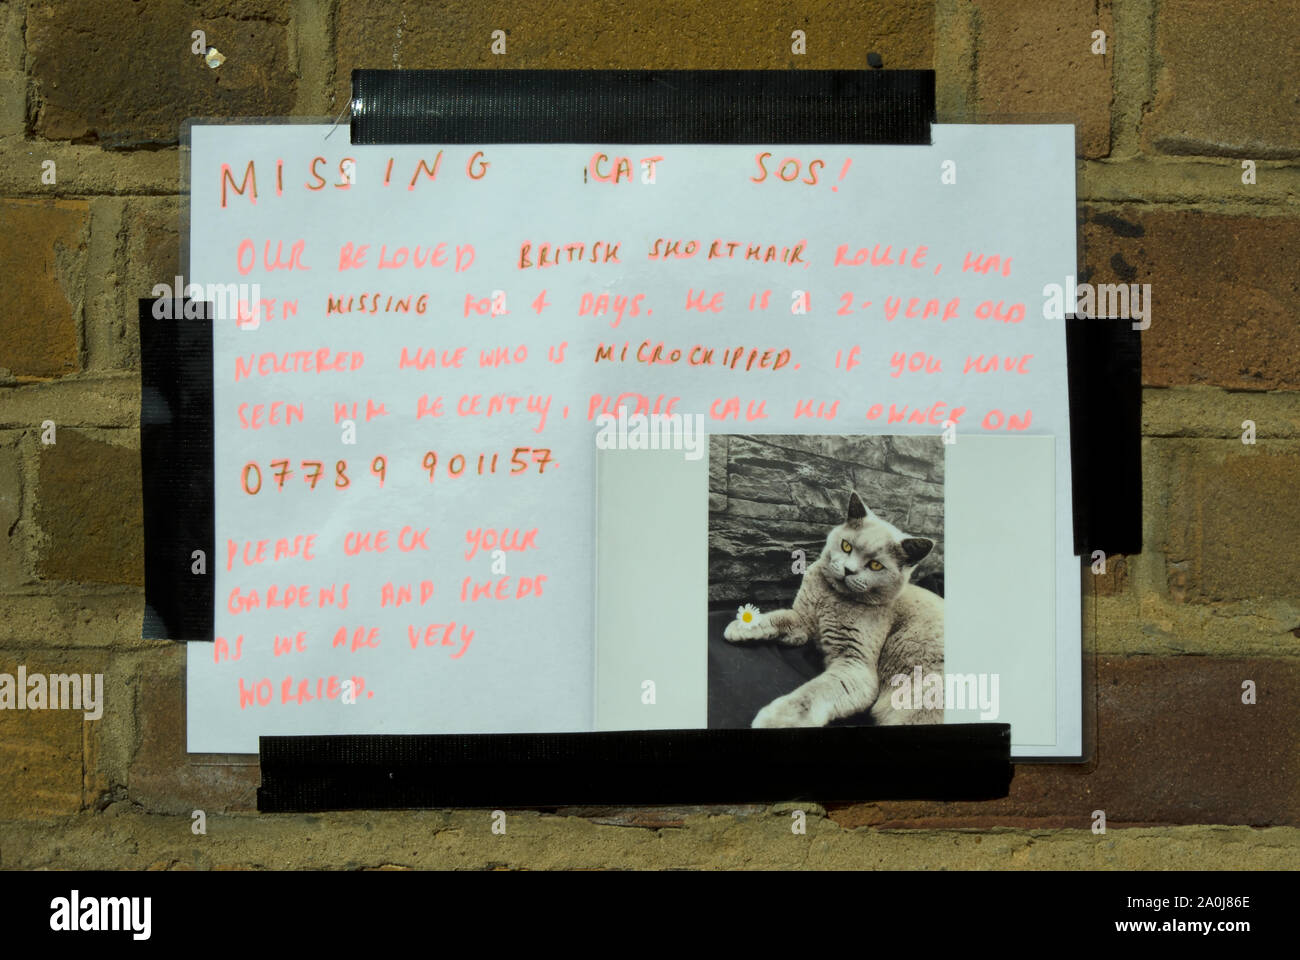 MISSING CAT SOS!
OUR BELOVED BRITISH SHORTHAIR, ROLLIE, HAS
BEEN MISSING FOR 4 DAYS. HE IS A 2-YEAR OLD
NEUTERED MALE WHO IS MICROCHIPPED. IF YOU HAVE
SEEN HIM RECENTLY, PLEASE CALL HIS OWNER ON
07789 901157.
PLEASE CHECK YOUR
GARDENS AND SHEDS
AS WE ARE VERY
WORRIED.
alamy
alamy
Image ID: 2A0J86E
www.alamy.com